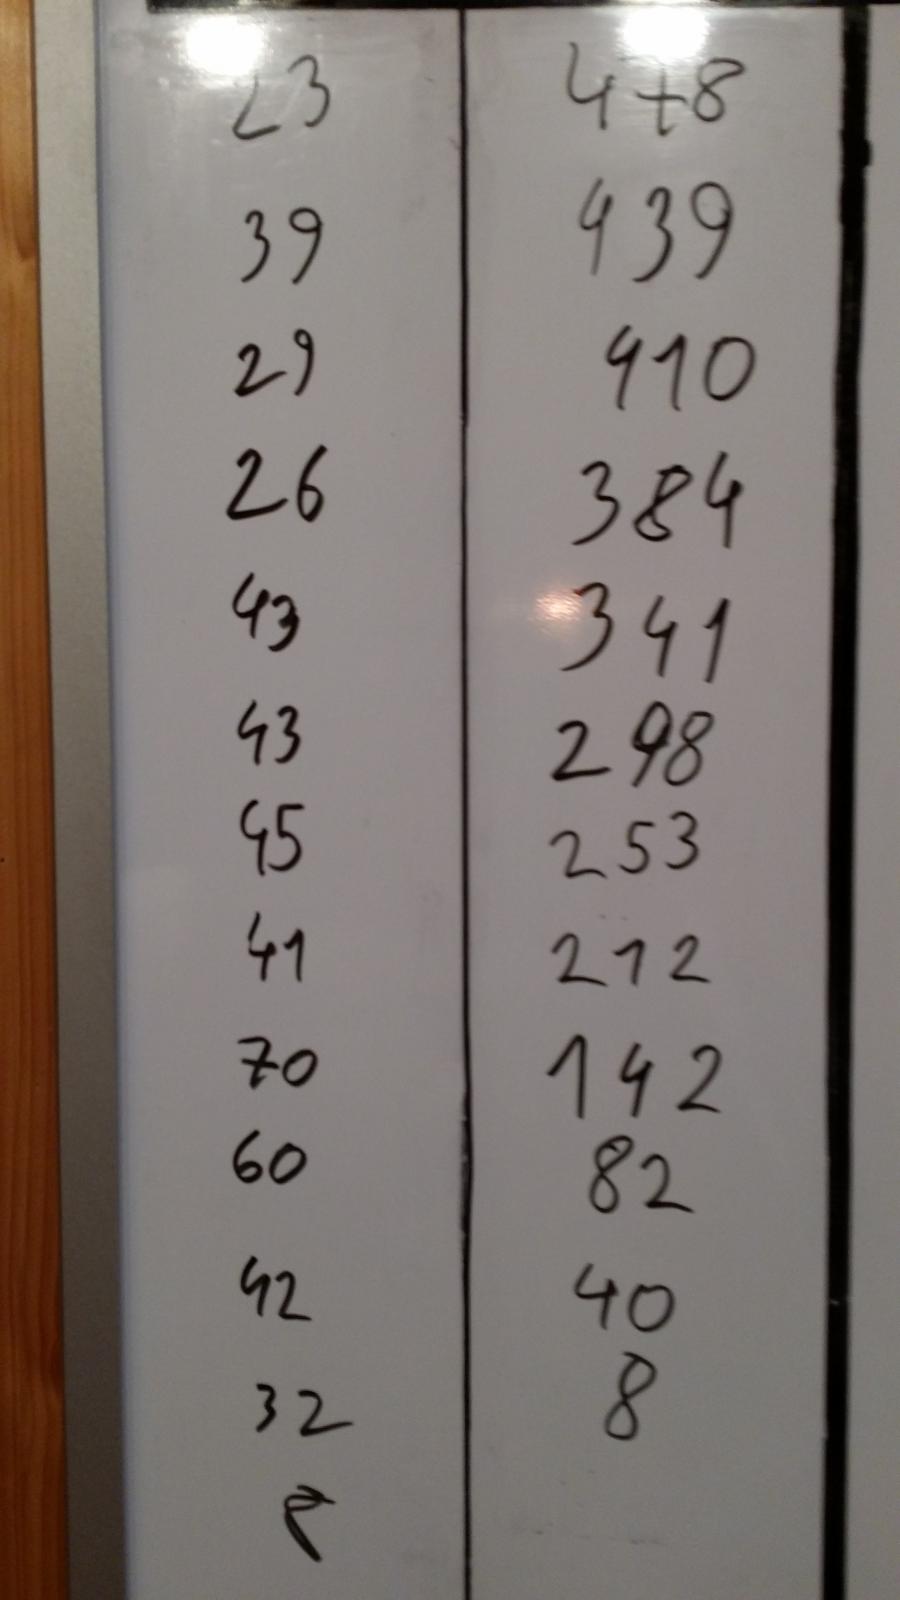 23 478
39 439
29 410
26 384
43 341
43 298
45 253
41 212
70 142
60 82
42 40
32 8